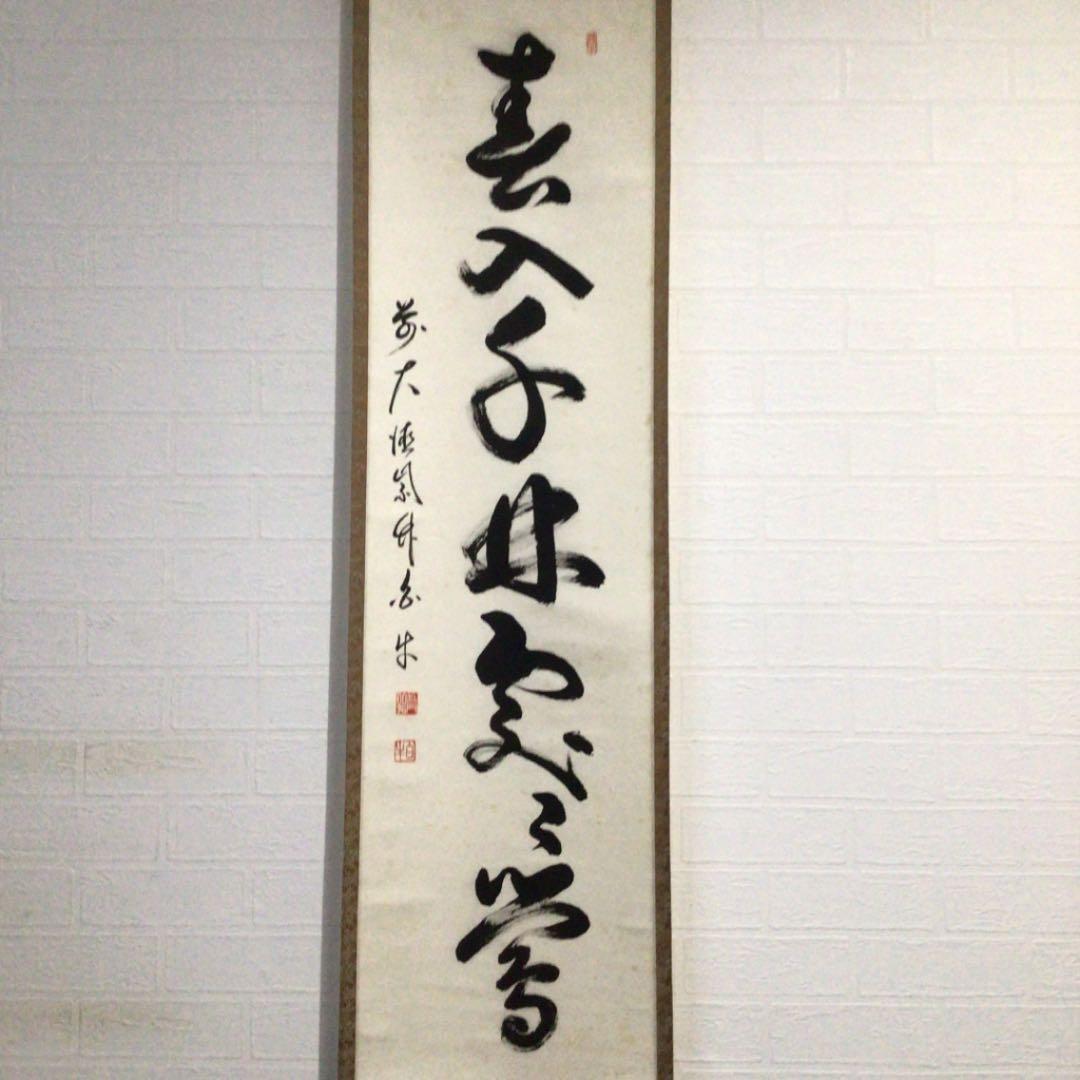 春入千林處々鶯
前大徳紫野白牛